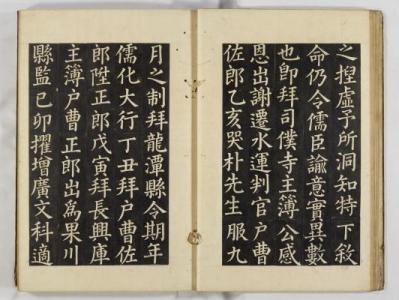 之揑虛予所洞知特下敍
命仍令儒臣諭意實異數
也卽拜司僕寺主簿公感
恩出謝遷水運判官戶曹
佐郎乙亥哭朴先生服九
月之制拜龍潭縣令期年
儒化大行丁丑拜戶曹佐
郎陞正郎戊寅拜長興庫
主簿戶曹正郎出爲果川
縣監己卯擢增廣文科適